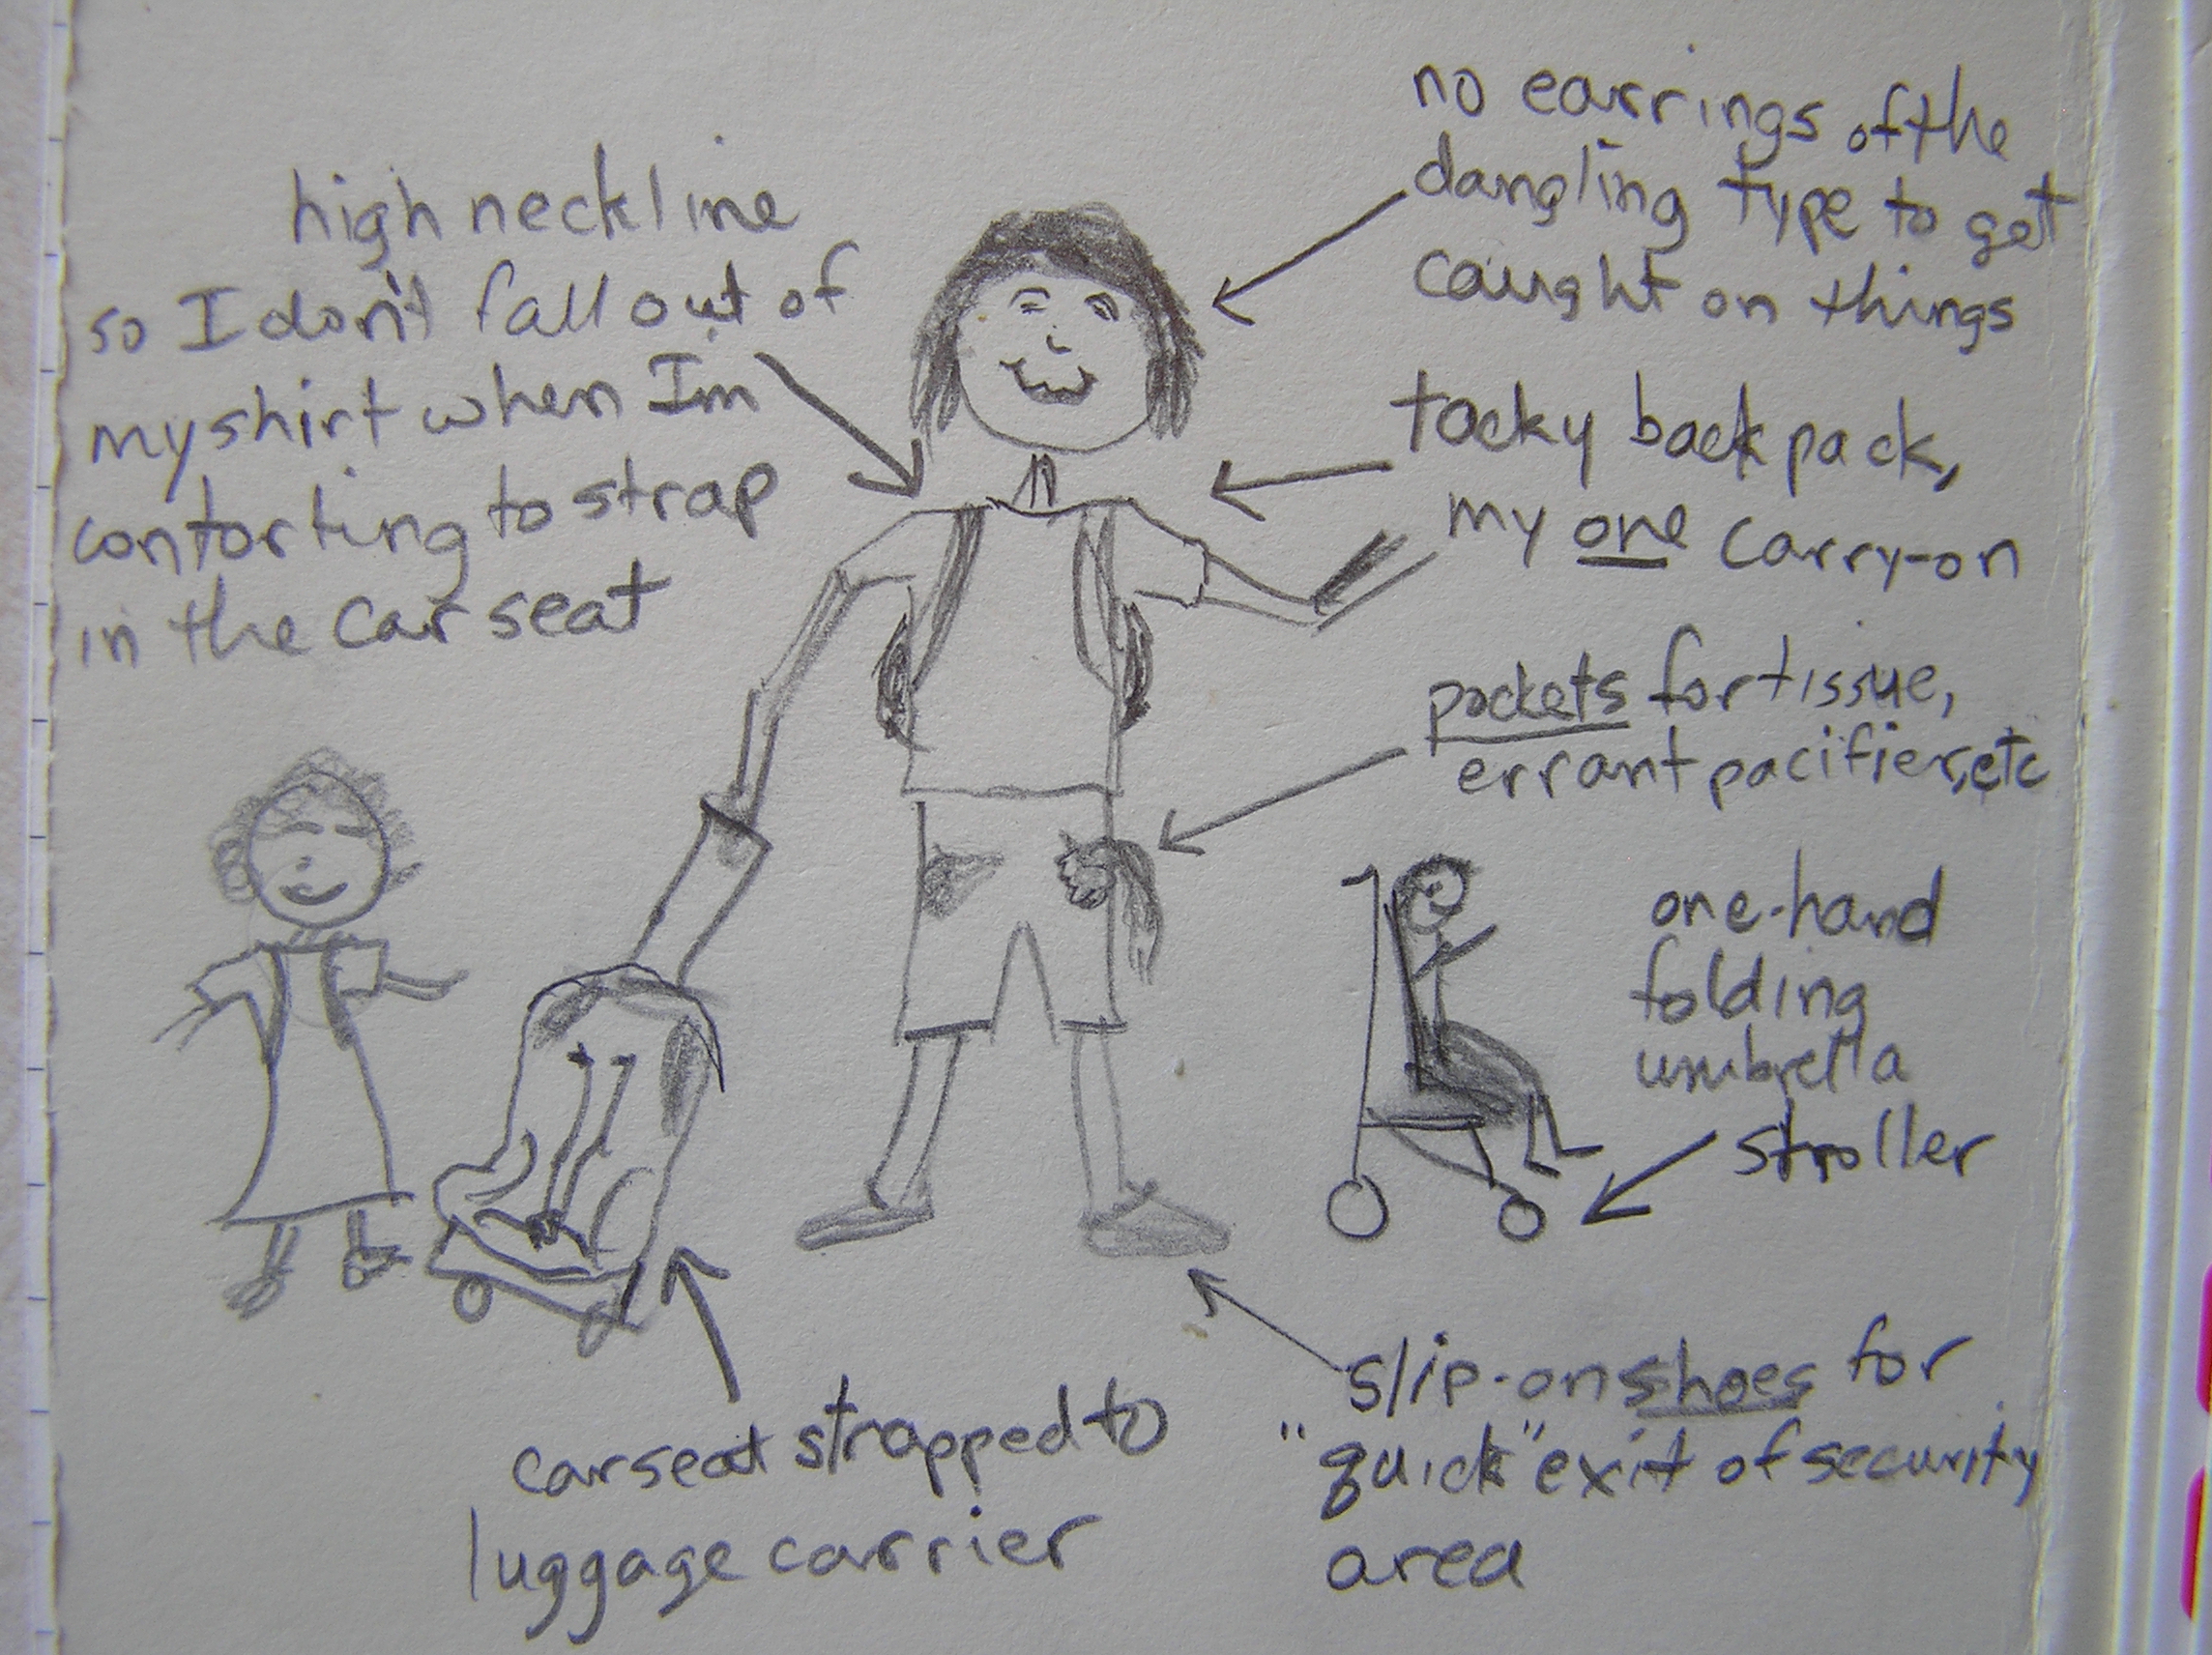 high neckline
so I don't fall out of
my shirt when Im
contorting to strap
in the car seat
no earrings of the
dangling type to get
caught on things
tacky backpack,
my one carry-on
pockets for tissue,
errant pacifier, etc
one-hand
folding
umbrella
stroller
slip-on shoes for
"quick" exit of security
area
car seat strapped to
luggage carrier